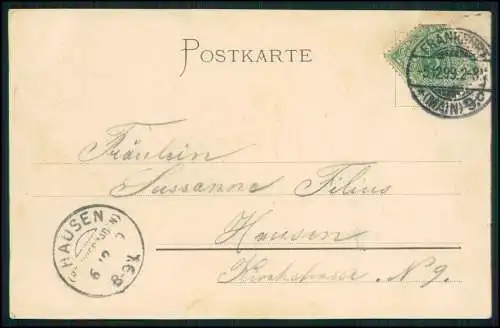 POSTKARTE
FRANKFURT
5.12.99.2-3N.
*(MAIN) 9.c
Fräulein
Sussanne Filius
Hausen
Kirchstrasse N 9.
HAUSEN
6 12 9
8-9V.